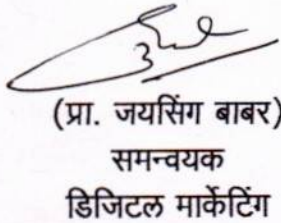 (प्रा. जयसिंग बाबर)
समन्वयक
डिजिटल मार्केटिंग